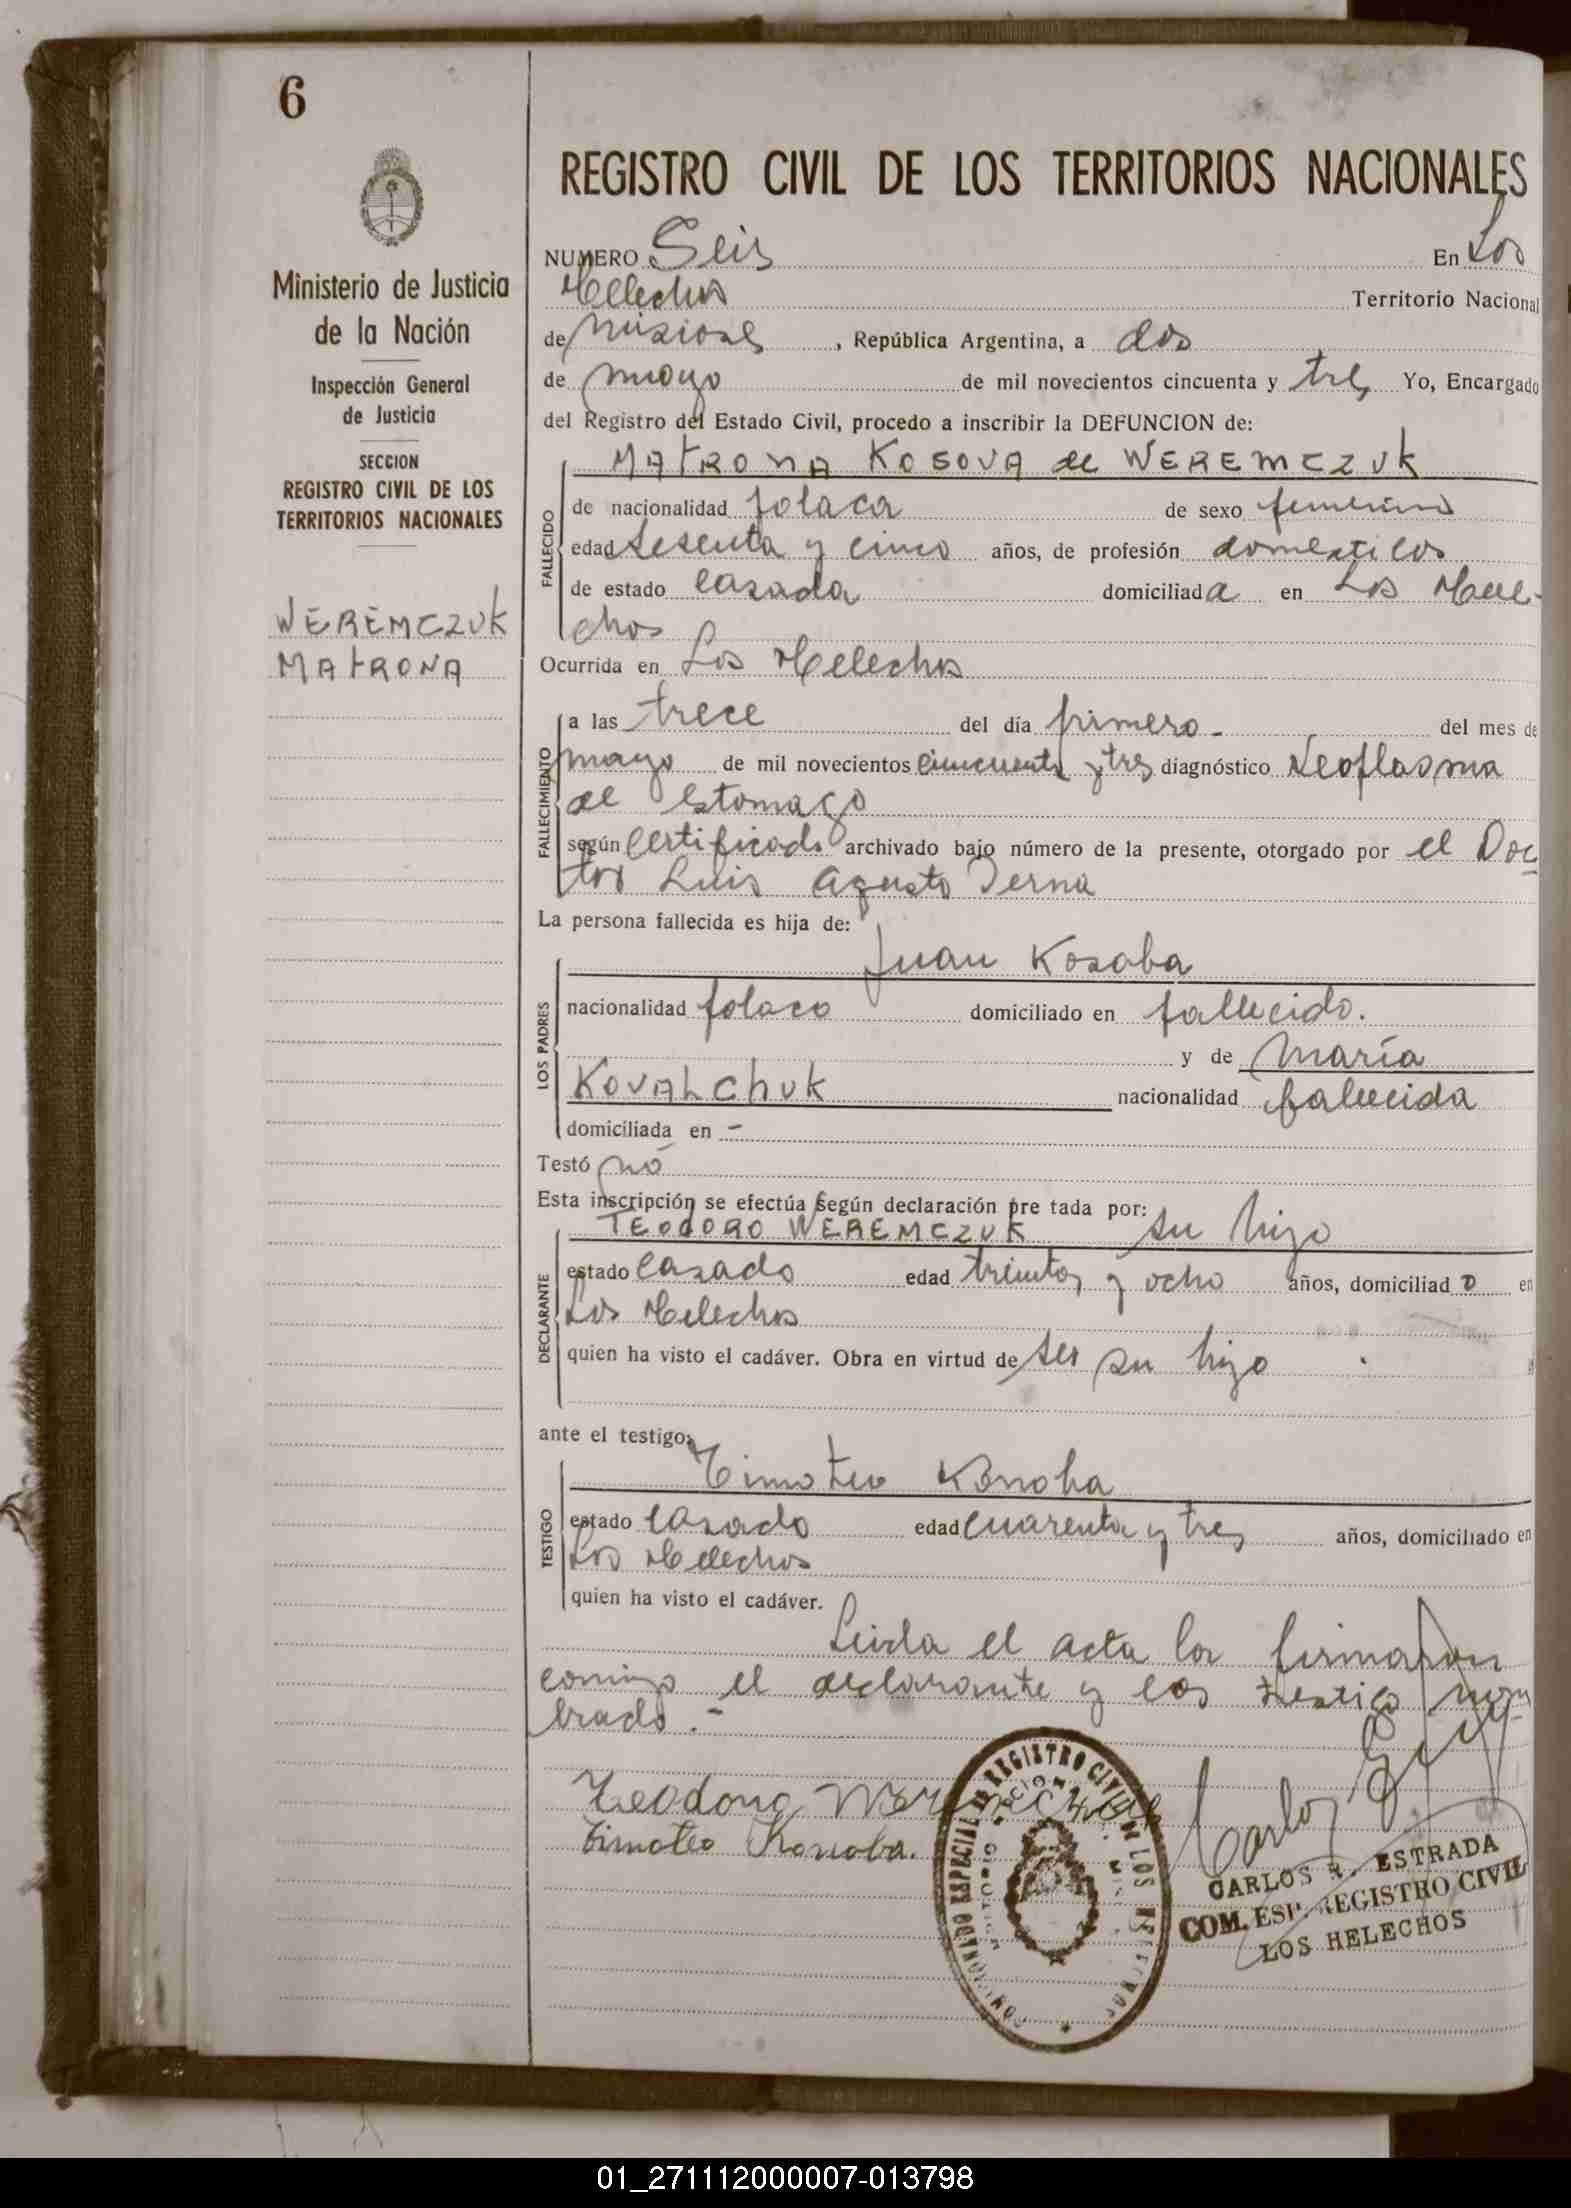 6
Ministerio de Justicia
de la Nación
Inspección General
de Justicia
SECCION
REGISTRO CIVIL DE LOS
TERRITORIOS NACIONALES
WEREMCZUK
MATRONA
REGISTRO CIVIL DE LOS TERRITORIOS NACIONALES
NUMERO Seis En Los
Helechos Territorio Nacional
de Misiones, República Argentina, a dos
de mayo de mil novecientos cincuenta y tres Yo, Encargado
del Registro del Estado Civil, procedo a inscribir la DEFUNCION de:
MATRONA KOSOVA de WEREMCZUK
FALLECIDO
de nacionalidad polaca de sexo femenino
edad sesenta y cinco años, de profesión domesticos
de estado casada domiciliada en Los Hele-
chos
Ocurrida en Los Helechos
FALLECIMIENTO
a las trece del día primero.- del mes de
mayo de mil novecientos cincuenta y tres diagnóstico Neoplasma
de estomago
según certificado archivado bajo número de la presente, otorgado por el Doc
tor Luis Agusto Terna
La persona fallecida es hija de:
LOS PADRES
Juan Kosoba
nacionalidad polaco domiciliado en fallecido.
y de María
KOVALCHUK nacionalidad fallecida
domiciliada en -
Testó nó
Esta inscripción se efectúa según declaración pre tada por:
DECLARANTE
TEODORO WEREMCZUK su hijo
estado casado edad treinta y ocho años, domiciliado en
Los Helechos
quien ha visto el cadáver. Obra en virtud de ser su hijo
ante el testigo:
TESTIGO
Timoteo Konoba
estado casado edad cuarenta y tres años, domiciliado en
Los Helechos
quien ha visto el cadáver.
Leida el acta la firmaron
comigo el declarante y los testigo nom
brado.-
Teodoro
Timoteo Konoba.
COMISIONADO ESPECIAL DE REGISTRO CIVIL DE LOS HELECHOS
CARLOS R. ESTRADA
COM. ESP. REGISTRO CIVIL
LOS HELECHOS
01_271112000007-013798